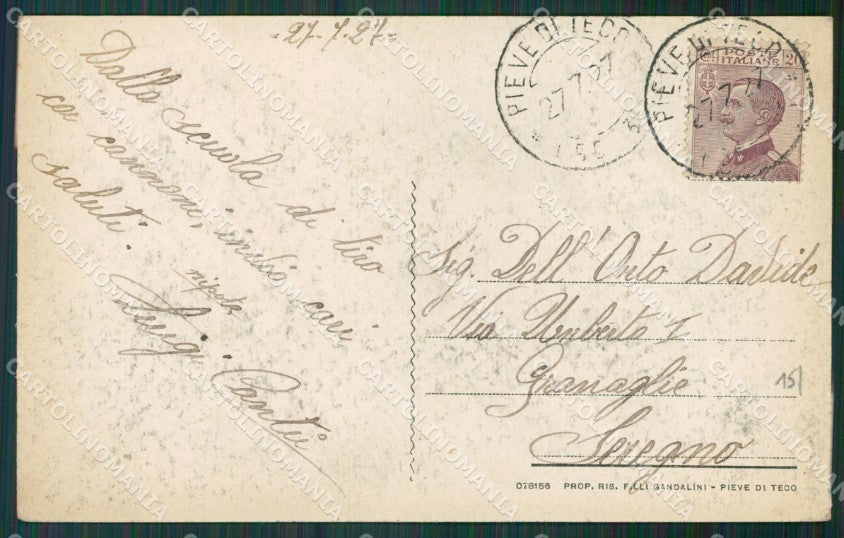 27-7-27
Dalla scuola di tiro
coi cannoni, invio cari
saluti.
nipote
Luigi Cantù
PIEVE DI TECO
27.7.27
PIEVE DI TECO
27.7.27
POSTE
ITALIANE
20
Sig. Dell'Orto Davide
Via Umberto I
Granaglie
Seregno
15/
078156 PROP. RIS. F.LLI GANDALINI - PIEVE DI TECO
CARTOLINOMANIA